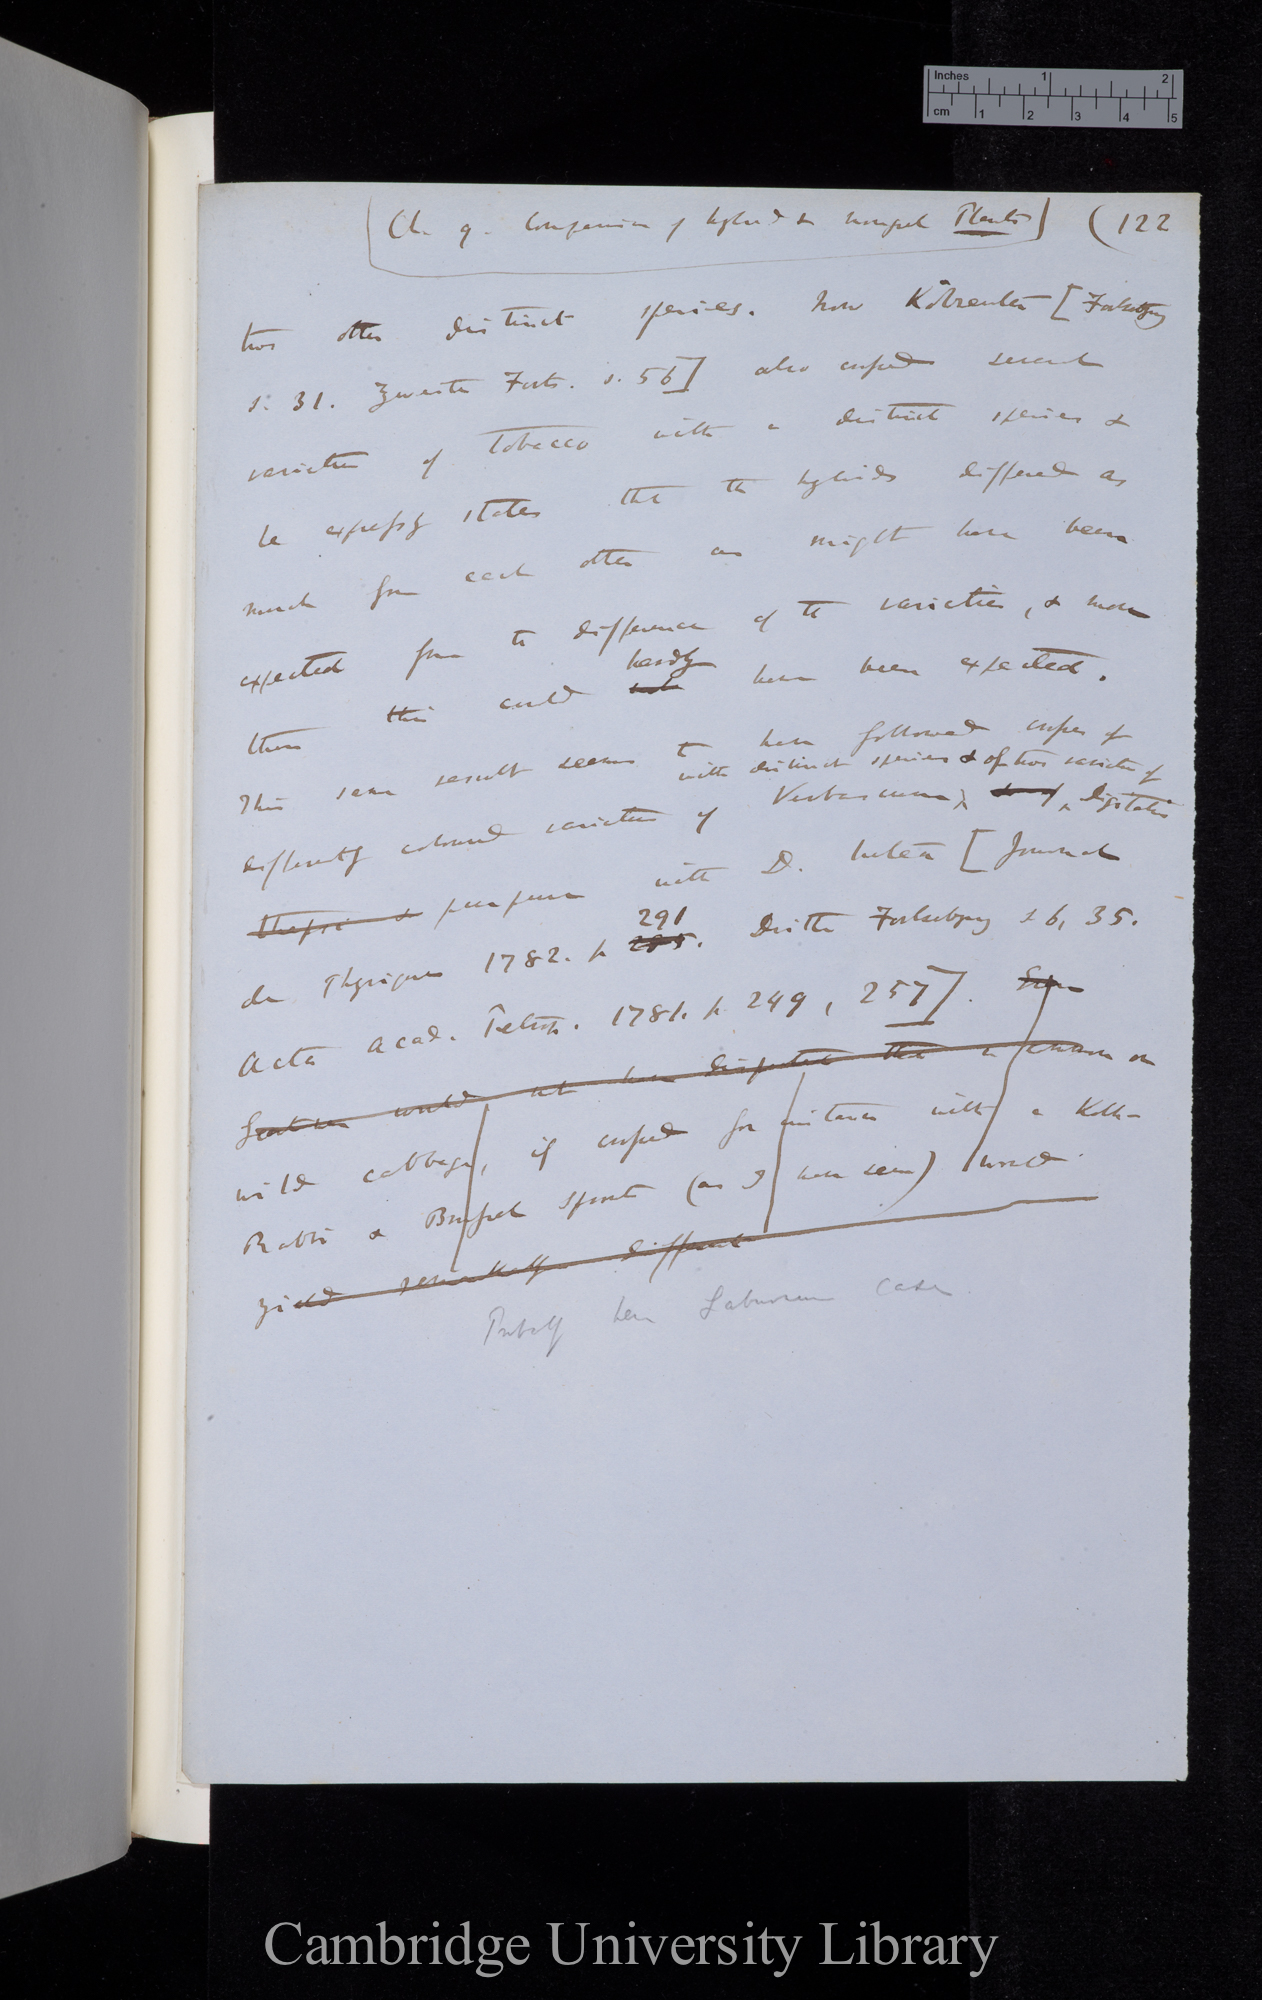 Inches 1 2
cm 1 2 3 4 5
(Ch. 9. Comparison of hybrid & mongrel Plants) (122
two other distinct species. Now Kölreuter [Fortsetzung
s. 31. Zweite Forts. s. 56] also crossed several
varieties of Tobacco with a distinct species &
he expressly states that the hybrids differed as
much from each other as might have been
expected from the difference of the varieties, & more
hardly
than this could not have been expected.
This same result seems to have followed crosses of
with distinct species & of two varieties of
differently coloured varieties of Verbascum, Digitalis
Thapsi & purpurea with D. lutea [Journal
291
de Physique 1782. p 285. Dritte Fortsetzung s 6, 35.
Acta Acad. Petrop. 1781. p. 249, 257].
would not have disputed that a common or
wild cabbage, if crossed for instance with a Kohl-
Rabbi & Brussel sprouts (as I have seen) would
yield remarkably different
Probably here Laburnum case
Cambridge University Library